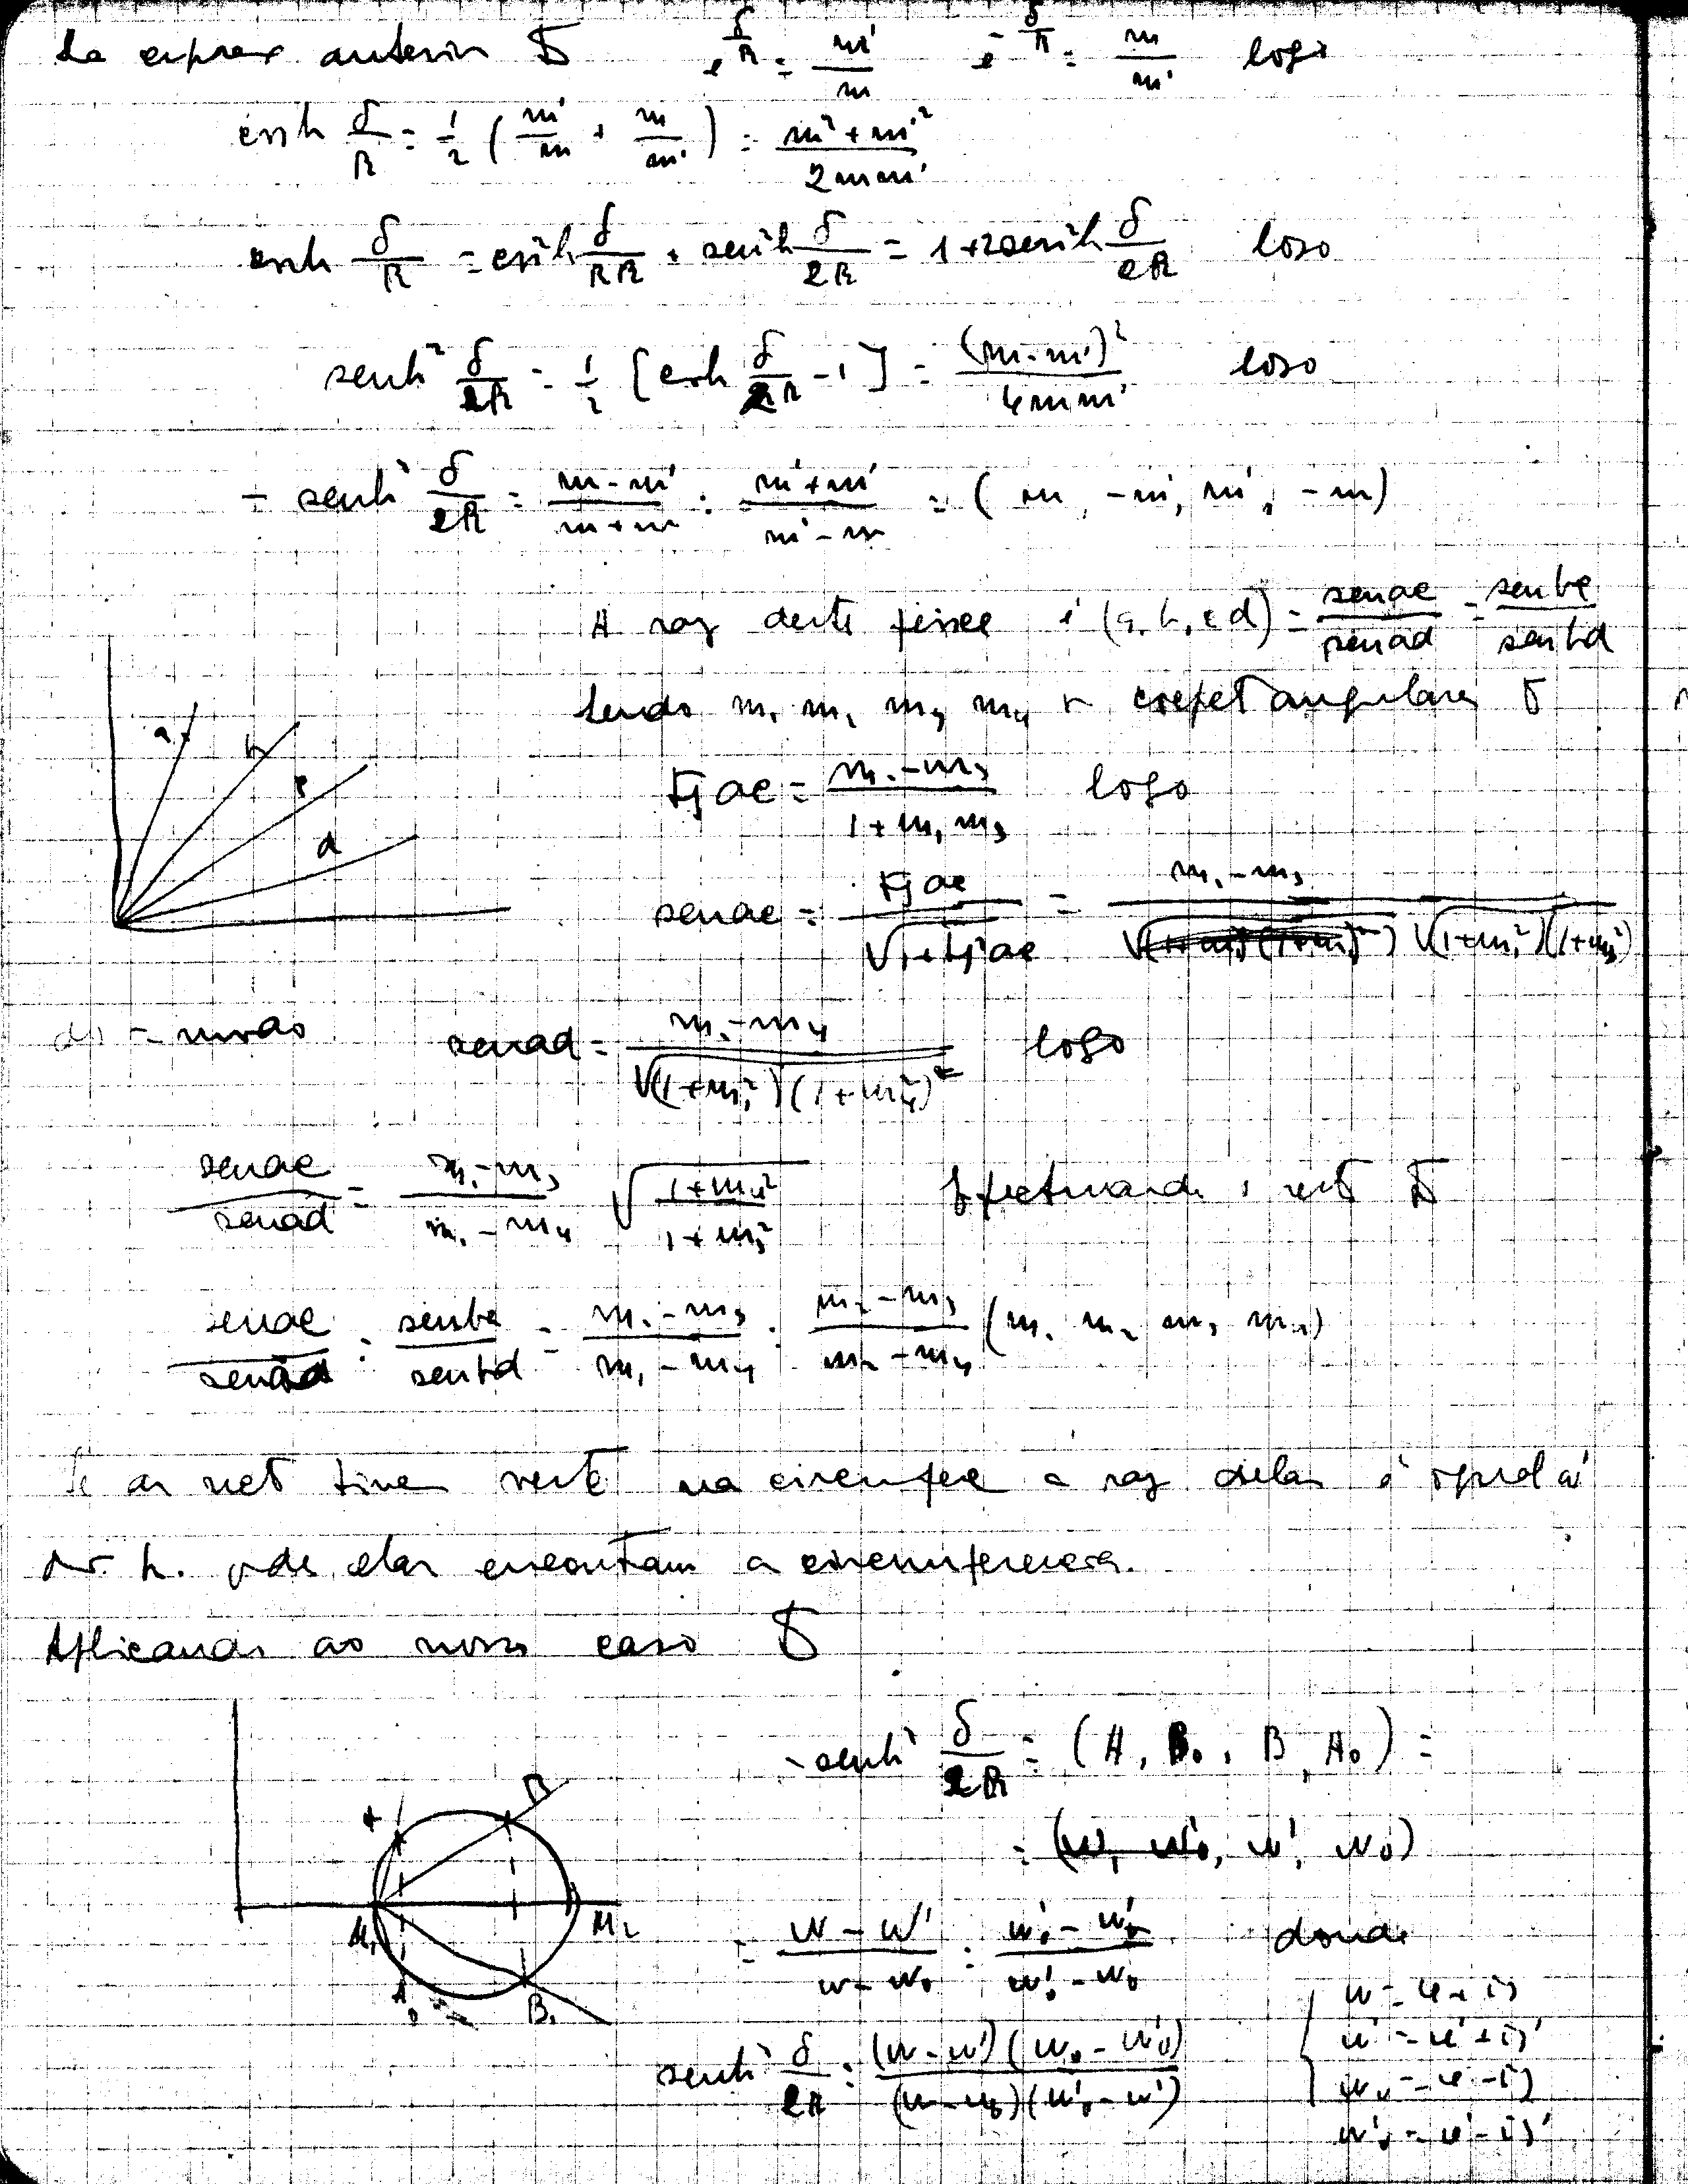 e^{δ/R} = m'/m e^{-δ/R} = m/m' logo
cosh δ/R = 1/2 (m'/m + m/m') = (m² + m'²)/(2mm')
cosh δ/R = cos²h δ/2R + sen²h δ/2R = 1 + 2 sen²h δ/2R logo
senh² δ/2R = 1/2 [cosh δ/2R - 1] = (m - m')²/(4mm') logo
- senh² δ/2R = (m - m')/(m + m) : (m' + m')/(m' - m) = (m, -m', m', -m)
A raz deste feixe é (a, b, c d) = sen ac/sen ad : sen bc/sen bd
Sendo m₁ m₂ m₃ m₄ coefet angulares
a b c d
tg ac = (m₁ - m₃)/(1 + m₁ m₃) logo
sen ac = tg ac/√(1 + tg² ac) = (m₁ - m₃)/√((1 + m₁²)(1 + m₃²))
sen ad = (m₁ - m₄)/√((1 + m₁²)(1 + m₄²)) logo
sen ac/sen ad = (m₁ - m₃)/(m₁ - m₄) √((1 + m₄²)/(1 + m₃²))
sen ac/sen ad : sen bc/sen bd = (m₁ - m₃)/(m₁ - m₄) : (m₂ - m₃)/(m₂ - m₄) (m₁ m₂ m₃ m₄)
Se as ret na circunfer a raz delas é
elas encontram a circunferencia.
Aplicando ao nosso caso
A B M₁ M₂ A₀ B₀
- senh² δ/2R = (A, B₀, B, A₀) =
= (w, w'₀, w', w₀)
= (w - w')/(w - w₀) : (w'₀ - w')/(w'₀ - w₀) donde
senh² δ/2R = (w - w')(w₀ - w'₀)/(w - w₀)(w'₀ - w')
w = u + iv
w' = u' + iv'
w₀ = u - iv
w'₀ = u' - iv'